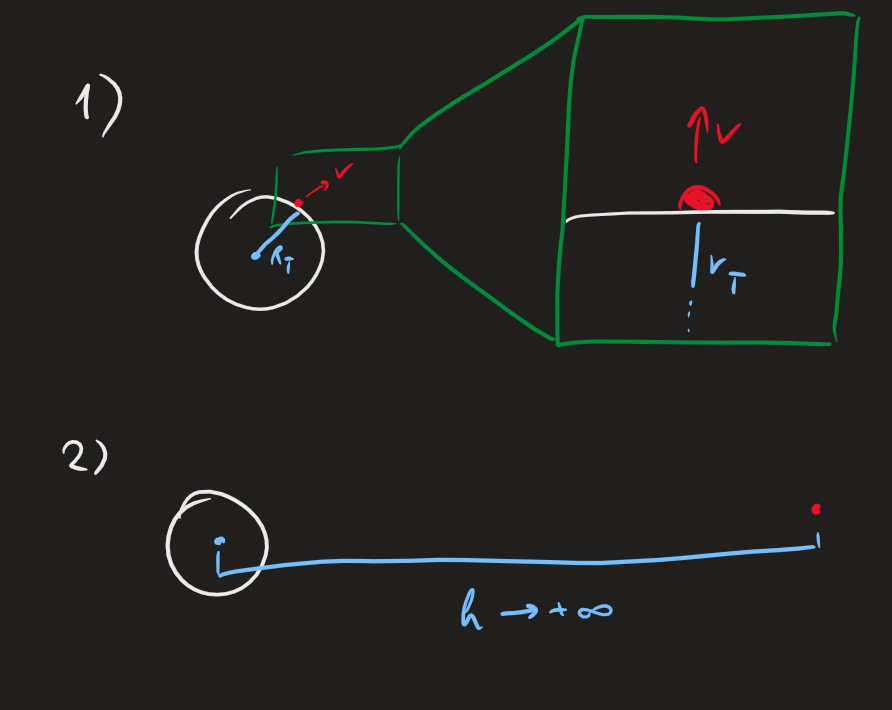 1)
v
R_T
v
r_T
2)
h → +∞